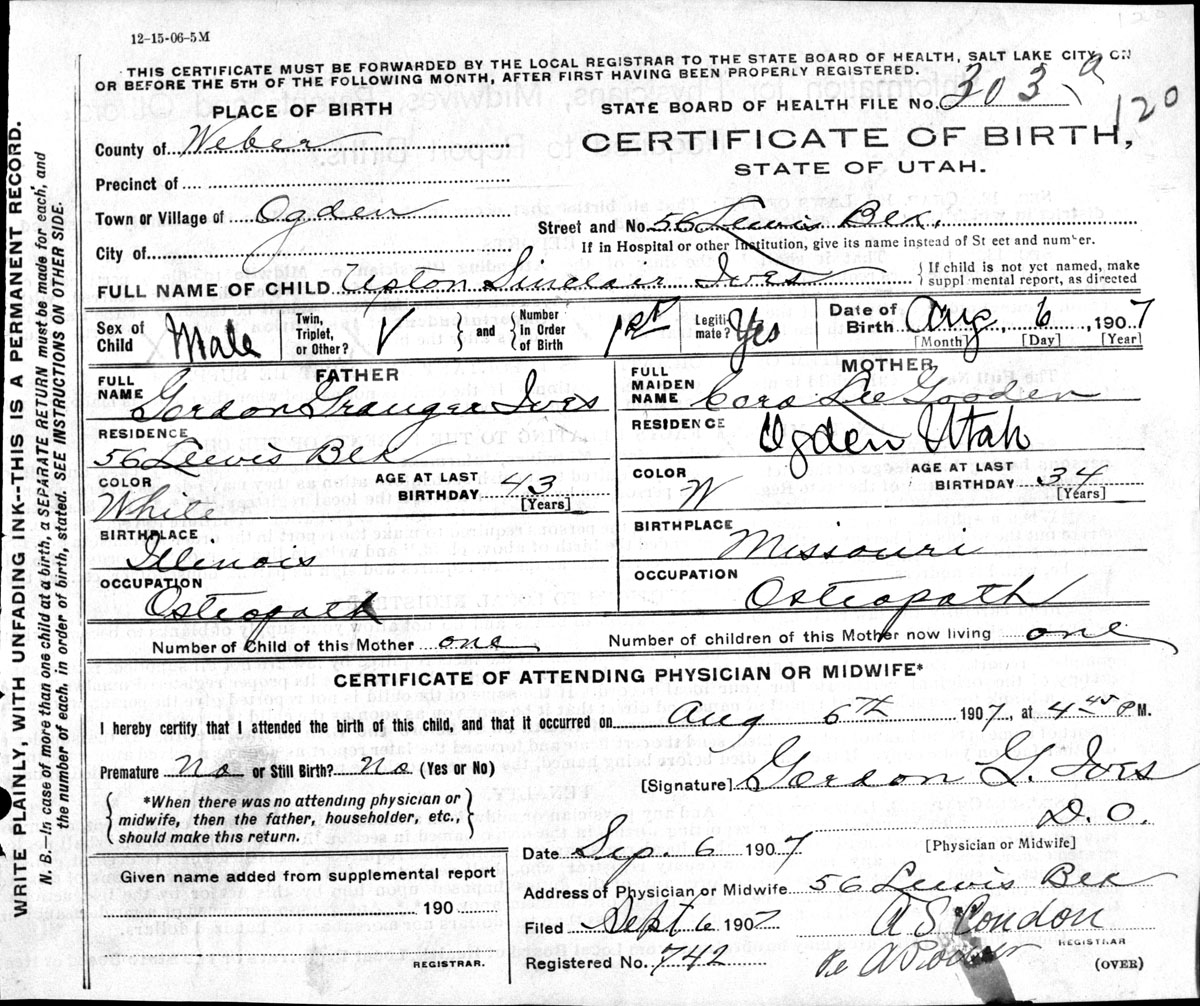 12-15-06-5M
THIS CERTIFICATE MUST BE FORWARDED BY THE LOCAL REGISTRAR TO THE STATE BOARD OF HEALTH, SALT LAKE CITY, ON
OR BEFORE THE 5TH OF THE FOLLOWING MONTH, AFTER FIRST HAVING BEEN PROPERLY REGISTERED.
PLACE OF BIRTH
STATE BOARD OF HEALTH FILE No. 303 a
120
County of Weber
CERTIFICATE OF BIRTH,
STATE OF UTAH.
Precinct of
Town or Village of Ogden
Street and No. 56 Lewis Bex.
City of
If in Hospital or other Institution, give its name instead of St eet and number.
FULL NAME OF CHILD Upton Sinclair Ives
If child is not yet named, make
suppl mental report, as directed
Sex of Child Male
Twin, Triplet, or Other? V
and Number In Order of Birth 1st
Legiti-mate? Yes
Date of Birth Aug 6 1907
[Month] [Day] [Year]
FATHER
FULL NAME Gordon Granger Ives
RESIDENCE
56 Lewis Bex
COLOR White
AGE AT LAST BIRTHDAY 43 [Years]
BIRTHPLACE
Illinois
OCCUPATION
Osteopath
MOTHER
FULL MAIDEN NAME Cora Lee Gooden
RESIDENCE
Ogden Utah
COLOR W
AGE AT LAST BIRTHDAY 34 [Years]
BIRTHPLACE
Missouri
OCCUPATION
Osteopath
Number of Child of this Mother one
Number of children of this Mother now living one
CERTIFICATE OF ATTENDING PHYSICIAN OR MIDWIFE*
I hereby certify, that I attended the birth of this child, and that it occurred on Aug 6th 1907, at 4 45 P M.
Premature No or Still Birth? No (Yes or No)
[Signature] Gordon G. Ives
D.O.
*When there was no attending physician or
midwife, then the father, householder, etc.,
should make this return.
[Physician or Midwife]
Date Sep. 6 1907
Given name added from supplemental report
190
REGISTRAR.
Address of Physician or Midwife 56 Lewis Bex
Filed Sept 6 1907
A S Condon
REGISTRAR
Registered No. 742
(OVER)
WRITE PLAINLY, WITH UNFADING INK--THIS IS A PERMANENT RECORD.
N. B.—In case of more than one child at a birth, a SEPARATE RETURN must be made for each, and
the number of each, in order of birth, stated. SEE INSTRUCTIONS ON OTHER SIDE.